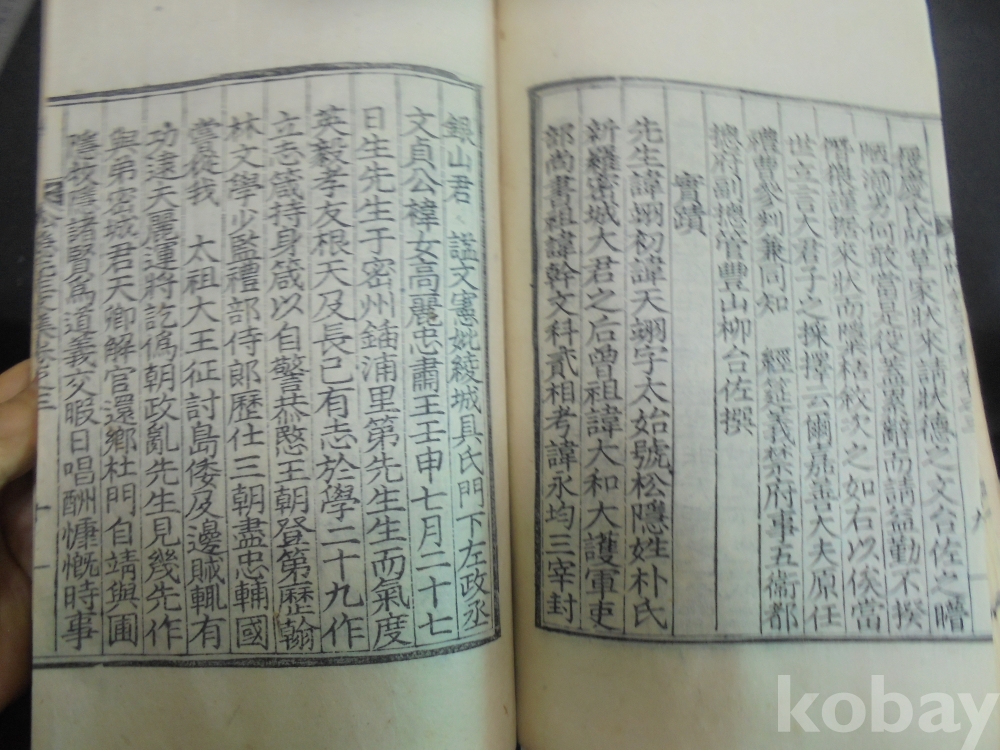 慶氏所草家狀來請狀德之文合佐之瞢
陋謭劣何敢當是役羅累辭而請益勤不揆
僭猥謹據來狀而檃栝敍次之如右以俟當
世立言大君子之採擇云爾嘉善大夫原任
禮曹參判兼同知 經筵義禁府事五衛都
摠府副摠管豐山柳台佐撰
實蹟
先生諱翊初諱天翊字太始號松隱姓朴氏
新羅密城大君之后曾祖諱大和大護軍吏
部尚書祖諱幹文科貳相考諱永均三宰封
銀山君 謚文憲妣綾城具氏門下左政丞
文貞公褘女高麗忠肅王壬申七月二十七
日生先生于密州鍤浦里第先生生而氣度
英毅孝友根天及長已有志於學二十九作
立志箴持身箴以自警恭愍王朝登第歷翰
林文學少監禮部侍郎歷仕三朝盡忠輔國
嘗從我 太祖大王征討島倭及邊賊輒有
功逮天麗運將訖僞朝政亂先生見幾先作
與弟密城君天卿解官還鄉杜門自靖與圃
隱牧隱諸賢爲道義交暇日唱酬慷慨時事
kobay